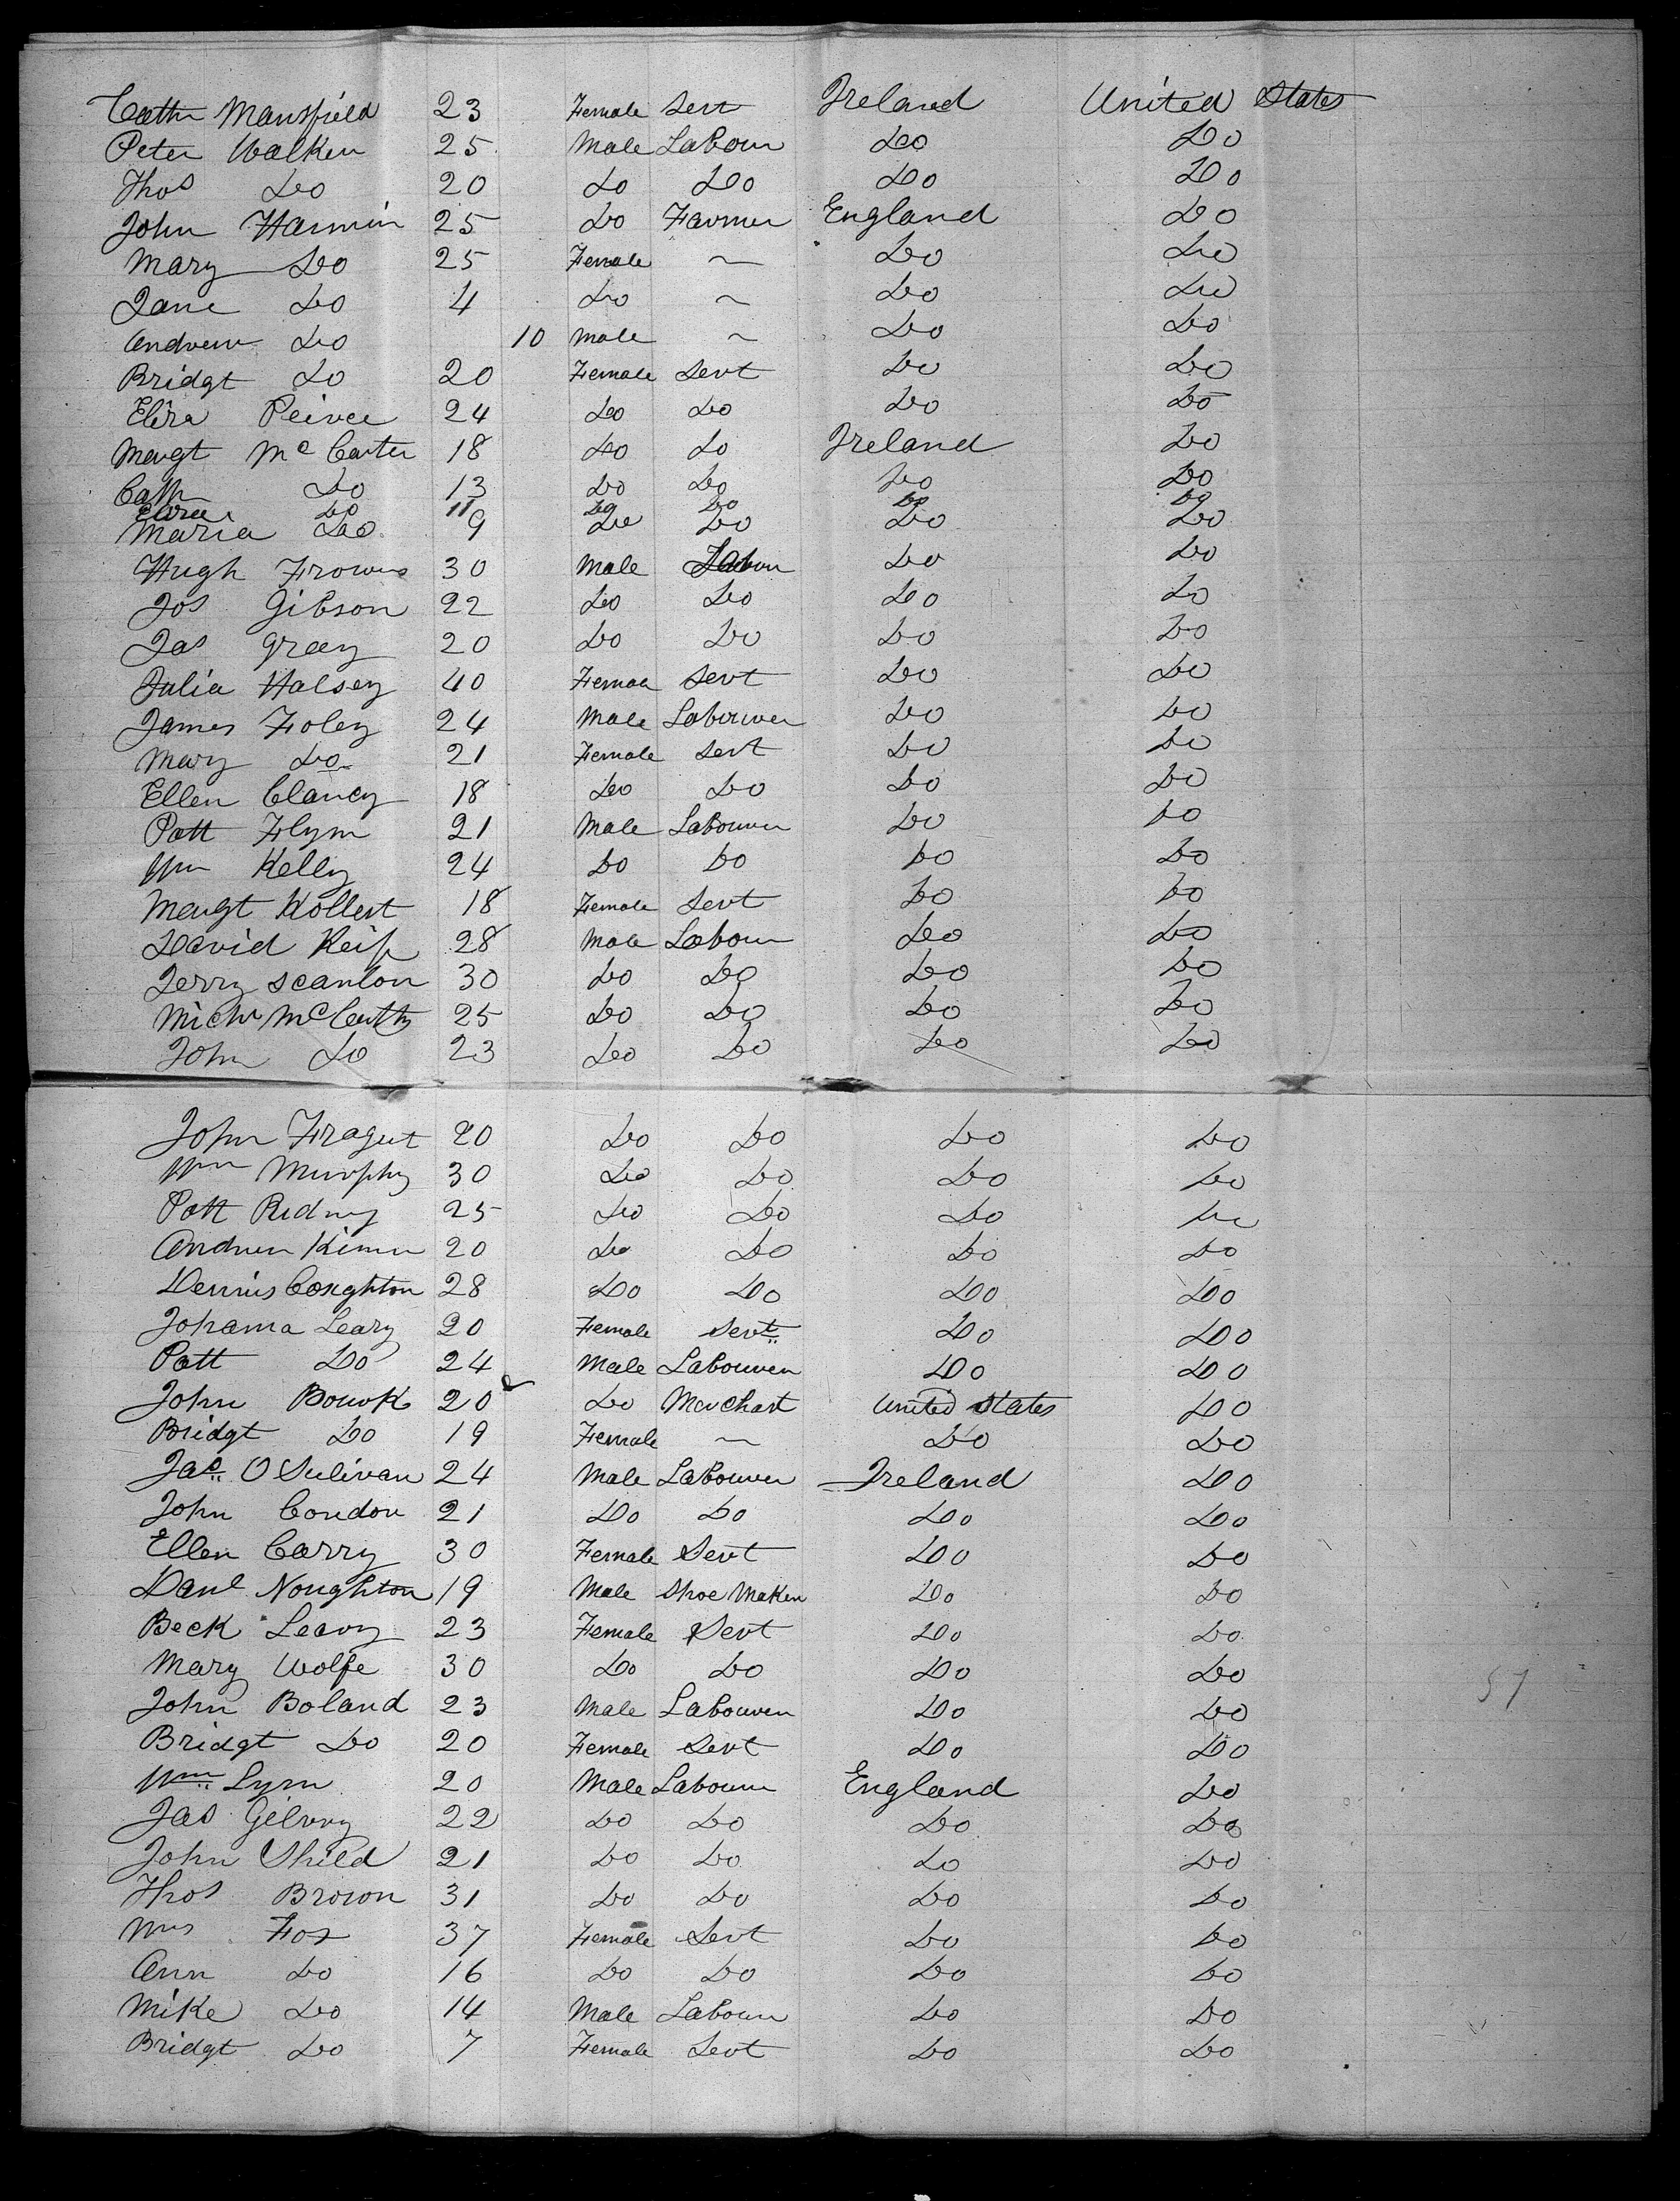 Cathn Mansfield 23 Female Servt Ireland United States
Peter Walker 25 Male Labour Do Do
Thos Do 20 Do Do Do Do
John Harmin 25 Do Farmer England Do
Mary Do 25 Female ~ Do Do
Jane Do 4 Do ~ Do Do
Andrew Do 10 Male ~ Do Do
Bridgt Do 20 Female Servt Do Do
Eliza Peirce 24 Do Do Do Do
Margt McCarter 18 Do Do Ireland Do
Cath Do 13 Do Do Do Do
Eliza Do 11 Do Do Do Do
Maria Do 9 Do Do Do Do
Hugh 30 Male Labour Do Do
Jos Gibson 22 Do Do Do Do
Jas Grey 20 Do Do Do Do
Julia Halsey 40 Female Servt Do Do
James Foley 24 Male Labourer Do Do
Mary Do 21 Female Servt Do Do
Ellen Clancy 18 Do Do Do Do
Patt Flynn 21 Male Labourer Do Do
Wm Kelly 24 Do Do Do Do
Margt Kollert 18 Female Servt Do Do
David 28 Male Labour Do Do
Jerry Scanlon 30 Do Do Do Do
Michl McCarthy 25 Do Do Do Do
John Do 23 Do Do Do Do
John 20 Do Do Do Do
Wm Murphy 30 Do Do Do Do
Patt 25 Do Do Do Do
Andrew 20 Do Do Do Do
Dennis Coughton 28 Do Do Do Do
Johanna Leary 20 Female Servt Do Do
Patt Do 24 Male Labourer Do Do
John Bourk 20 Do Marchant United States Do
Bridgt Do 19 Female ~ Do Do
Jas O Sulivan 24 Male Labourer Ireland Do
John Condon 21 Do Do Do Do
Ellen Carry 30 Female Servt Do Do
Danl Noughton 19 Male Shoe Maker Do Do
Beck Leary 23 Female Servt Do Do
Mary Wolfe 30 Do Do Do Do
John Boland 23 Male Labourer Do Do
Bridgt Do 20 Female Servt Do Do
Wm Lynn 20 Male Labourer England Do
Jas Gilroy 22 Do Do Do Do
John Shild 21 Do Do Do Do
Thos Brown 31 Do Do Do Do
Mrs Fox 37 Female Servt Do Do
Ann Do 16 Do Do Do Do
Mike Do 14 Male Labour Do Do
Bridgt Do 7 Female Servt Do Do
57